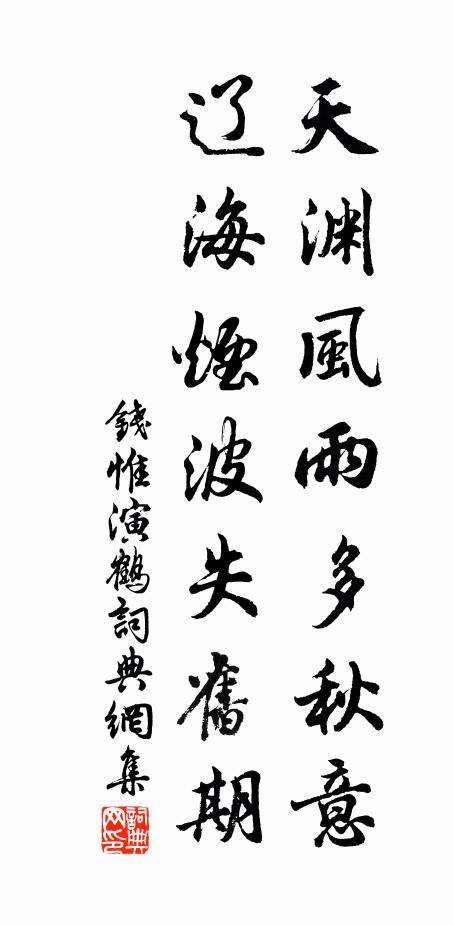 天渊風雨多秋意
辽海煙波失舊期
錢惟演鶴詞典網集
詞典网印